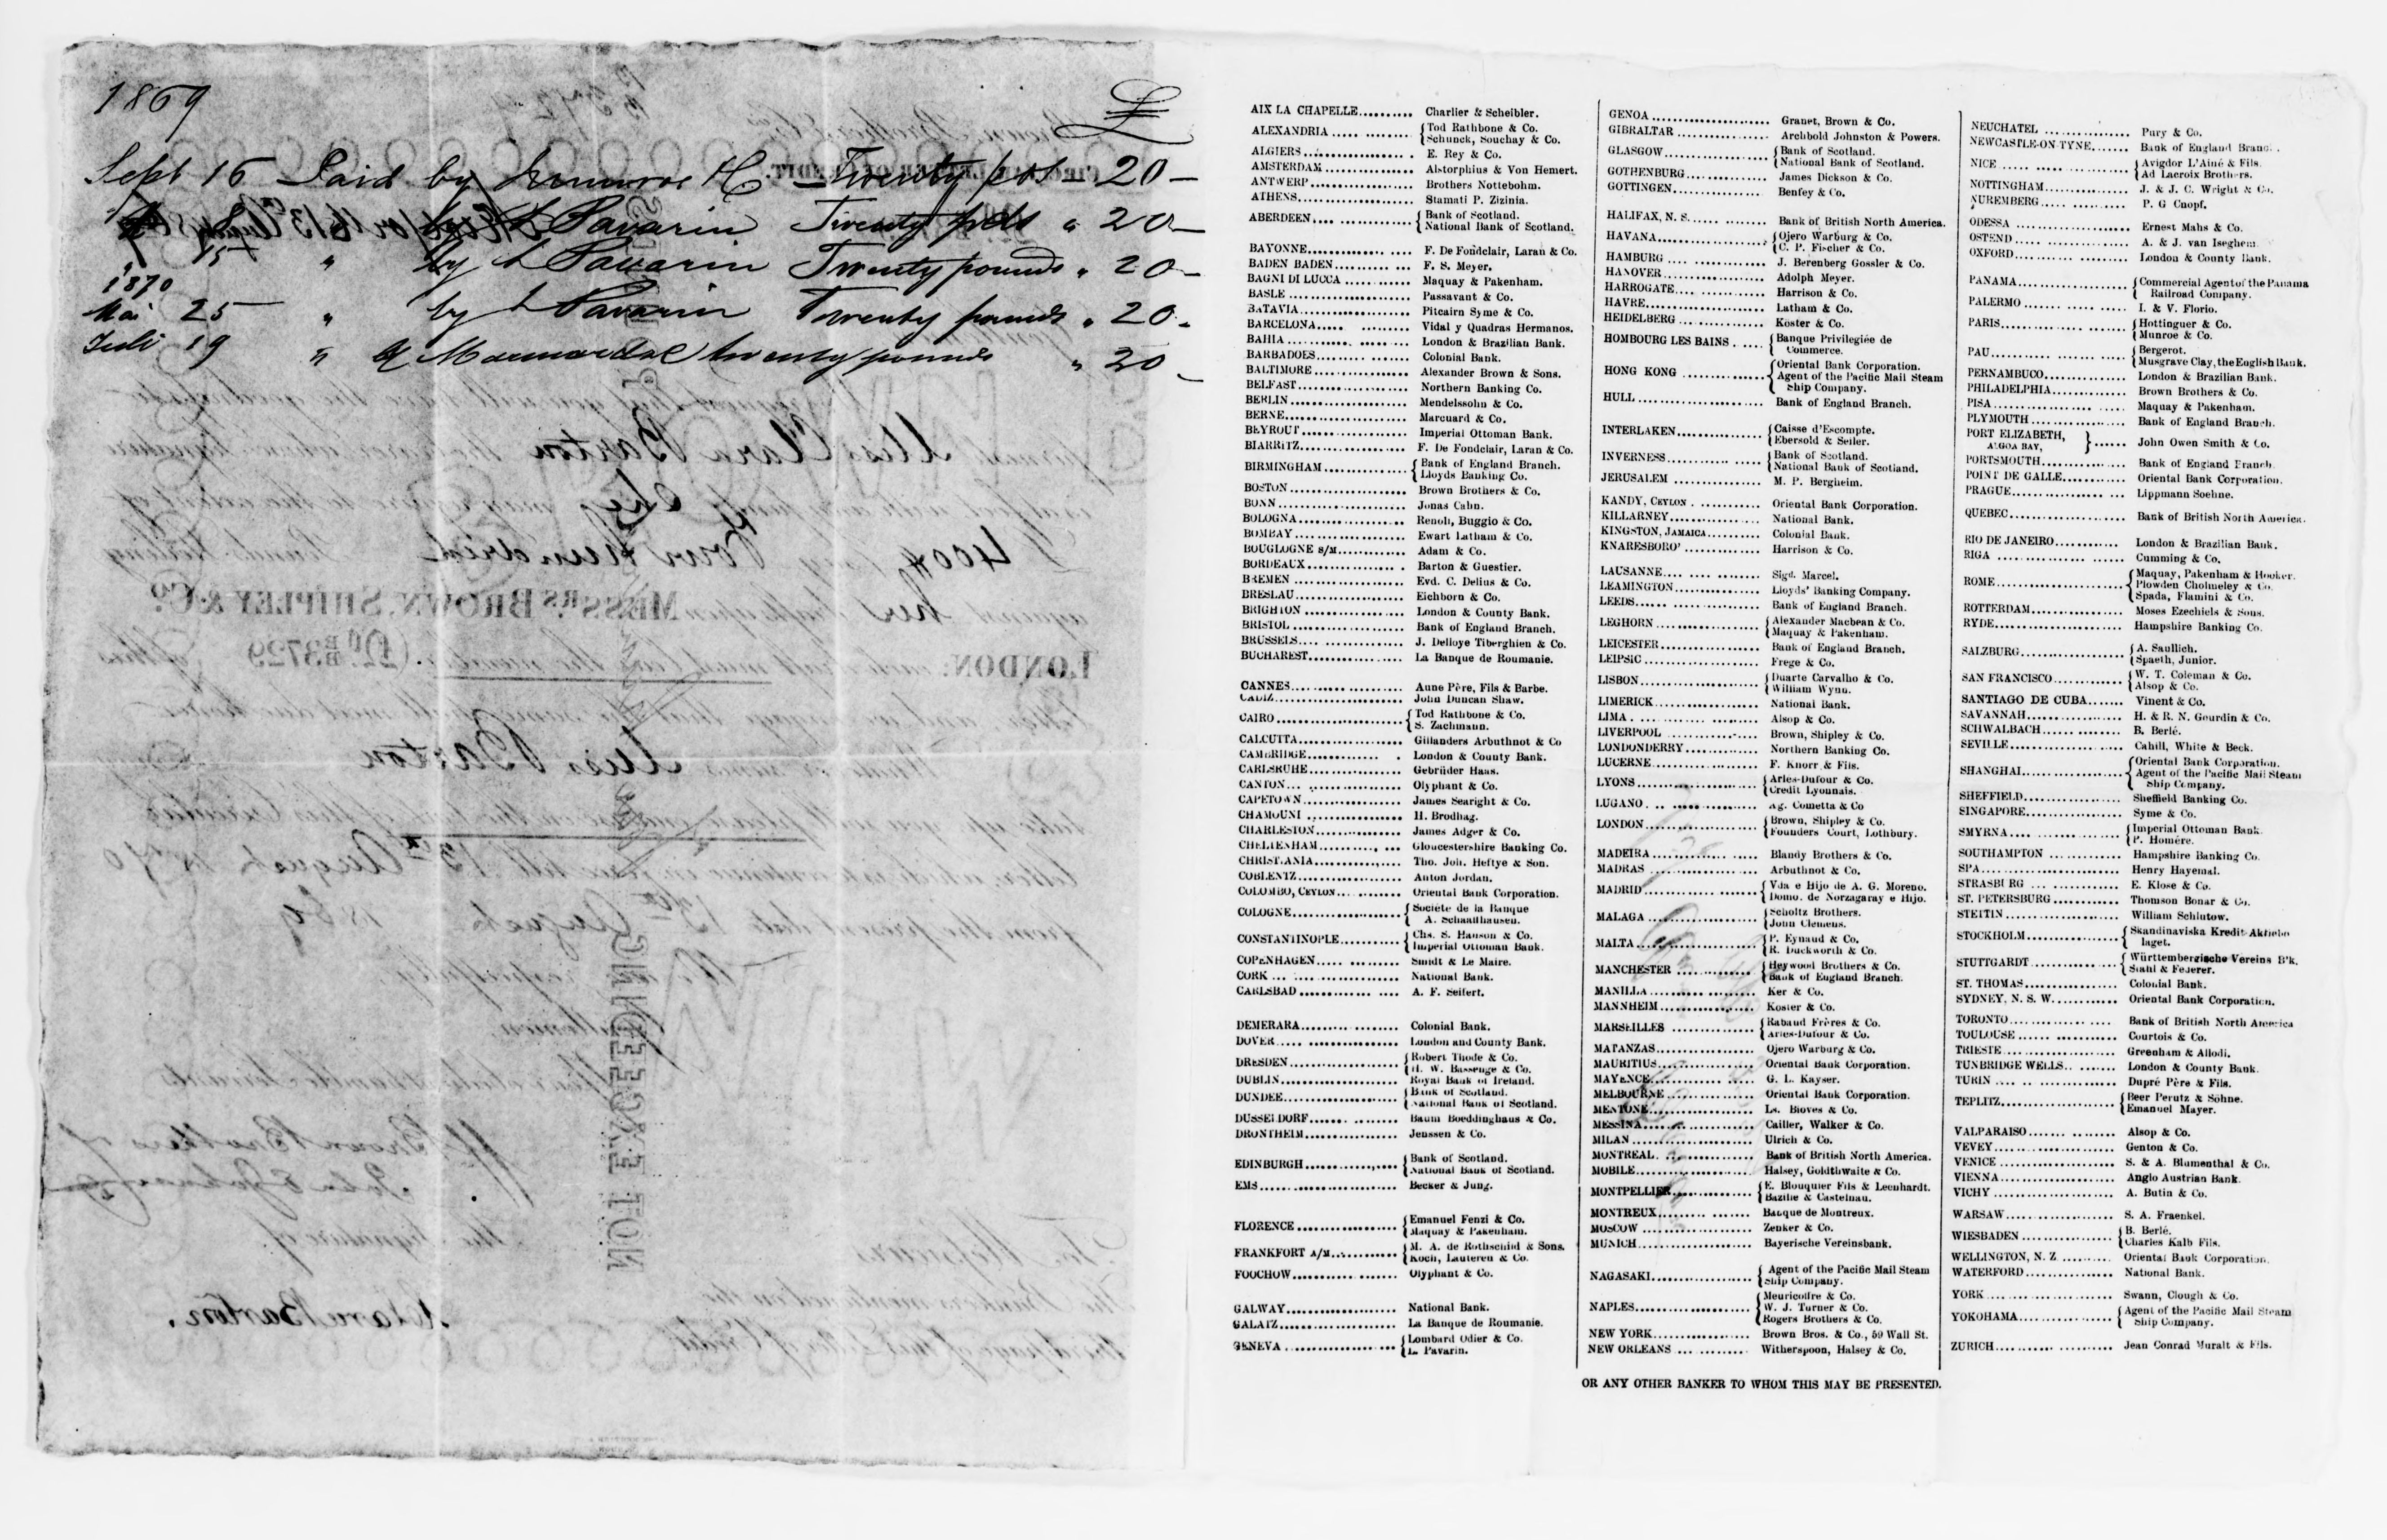 1869
£
Sept 16 Paid by Munroe & Co Twenty pds 20 –
by L Pavarin Twenty pds " 20 –
15 " by L Pavarin Twenty pounds " 20 –
1870
Mai 25 " by L Pavarin Twenty pounds " 20 -
Juli 19 " by Marcuard & Co twenty pounds " 20 -
CIRCULAR LETTER OF CREDIT.
Miss Clara Barton
£400 Four hundred Pounds Sterling
MESSRS. BROWN, SHIPLEY & CO.
LONDON: (No. B/B 3729)
Miss Barton
13th August 1870
13th August 1869
NOT EXCEEDING
Brown Brothers & Co
the signature of
To Messieurs
The Bankers mentioned on the
third page of this Letter of Credit.
Clara Barton.
AIX LA CHAPELLE.......... Charlier & Scheibler.
ALEXANDRIA .............. { Tod Rathbone & Co.
{ Schunck, Souchay & Co.
ALGIERS.................. E. Rey & Co.
AMSTERDAM................ Alstorphius & Von Hemert.
ANTWERP.................. Brothers Nottebohm.
ATHENS................... Stamati P. Zizinia.
ABERDEEN................. { Bank of Scotland.
{ National Bank of Scotland.
BAYONNE.................. F. De Fondclair, Laran & Co.
BADEN BADEN.............. F. S. Meyer.
BAGNI DI LUCCA .......... Maquay & Pakenham.
BASLE ................... Passavant & Co.
BATAVIA.................. Pitcairn Syme & Co.
BARCELONA................ Vidal y Quadras Hermanos.
BAHIA.................... London & Brazilian Bank.
BARBADOES................ Colonial Bank.
BALTIMORE................ Alexander Brown & Sons.
BELFAST.................. Northern Banking Co.
BERLIN................... Mendelssohn & Co.
BERNE.................... Marcuard & Co.
BEYROUT.................. Imperial Ottoman Bank.
BIARRITZ................. F. De Fondclair, Laran & Co.
BIRMINGHAM............... { Bank of England Branch.
{ Lloyds Banking Co.
BOSTON................... Brown Brothers & Co.
BONN .................... Jonas Cahn.
BOLOGNA.................. Renoli, Buggio & Co.
BOMBAY................... Ewart Latham & Co.
BOUGLOGNE S/M............ Adam & Co.
BORDEAUX................. Barton & Guestier.
BREMEN .................. Evd. C. Delius & Co.
BRESLAU.................. Eichborn & Co.
BRIGHTON ................ London & County Bank.
BRISTOL ................. Bank of England Branch.
BRUSSELS................. J. Delloye Tiberghien & Co.
BUCHAREST................ La Banque de Roumanie.
CANNES................... Aune Père, Fils & Barbe.
CADIZ.................... John Duncan Shaw.
CAIRO.................... { Tod Rathbone & Co.
{ S. Zachmann.
CALCUTTA................. Gillanders Arbuthnot & Co
CAMBRIDGE................ London & County Bank.
CARLSRUHE................ Gebrüder Haas.
CANTON................... Olyphant & Co.
CAPETOWN................. James Searight & Co.
CHAMOUNI ................ H. Brodhag.
CHARLESTON............... James Adger & Co.
CHELTENHAM............... Gloucestershire Banking Co.
CHRISTIANIA.............. Tho. Joh. Heftye & Son.
COBLENTZ................. Anton Jordan.
COLOMBO, CEYLON.......... Oriental Bank Corporation.
COLOGNE.................. { Société de la Banque
{ A. Schaaffhausen.
CONSTANTINOPLE........... { Chs. S. Hanson & Co.
{ Imperial Ottoman Bank.
COPENHAGEN............... Smidt & Le Maire.
CORK .................... National Bank.
CARLSBAD ................ A. F. Seifert.
DEMERARA................. Colonial Bank.
DOVER.................... London and County Bank.
DRESDEN.................. { Robert Thode & Co.
{ H. W. Bassenge & Co.
DUBLIN................... Royal Bank of Ireland.
DUNDEE................... { Bank of Scotland.
{ National Bank of Scotland.
DUSSELDORF............... Baum Boeddinghaus & Co.
DRONTHEIM................ Jenssen & Co.
EDINBURGH................ { Bank of Scotland.
{ National Bank of Scotland.
EMS...................... Becker & Jung.
FLORENCE ................ { Emanuel Fenzi & Co.
{ Maquay & Pakenham.
FRANKFORT A/M............ { M. A. de Rothschild & Sons.
{ Koch, Lauteren & Co.
FOOCHOW.................. Olyphant & Co.
GALWAY................... National Bank.
GALATZ................... La Banque de Roumanie.
GENEVA .................. { Lombard Odier & Co.
{ L. Pavarin.
GENOA ................... Granet, Brown & Co.
GIBRALTAR ............... Archbold Johnston & Powers.
GLASGOW.................. { Bank of Scotland.
{ National Bank of Scotland.
GOTHENBURG............... James Dickson & Co.
GOTTINGEN................ Benfey & Co.
HALIFAX, N. S............ Bank of British North America.
HAVANA................... { Ojero Warburg & Co.
{ C. P. Fischer & Co.
HAMBURG ................. J. Berenberg Gossler & Co.
HANOVER ................. Adolph Meyer.
HARROGATE................ Harrison & Co.
HAVRE.................... Latham & Co.
HEIDELBERG .............. Koster & Co.
HOMBOURG LES BAINS ...... { Banque Privilegiée de
{ Commerce.
HONG KONG ............... { Oriental Bank Corporation.
{ Agent of the Pacific Mail Steam
{ Ship Company.
HULL .................... Bank of England Branch.
INTERLAKEN............... { Caisse d'Escompte.
{ Ebersold & Seiler.
INVERNESS................ { Bank of Scotland.
{ National Bank of Scotland.
JERUSALEM ............... M. P. Bergheim.
KANDY, CEYLON ........... Oriental Bank Corporation.
KILLARNEY................ National Bank.
KINGSTON, JAMAICA........ Colonial Bank.
KNARESBORO' ............. Harrison & Co.
LAUSANNE................. Sigd. Marcel.
LEAMINGTON............... Lloyds' Banking Company.
LEEDS.................... Bank of England Branch.
LEGHORN ................. { Alexander Macbean & Co.
{ Maquay & Pakenham.
LEICESTER................ Bank of England Branch.
LEIPSIC ................. Frege & Co.
LISBON................... { Duarte Carvalho & Co.
{ William Wynn.
LIMERICK................. National Bank.
LIMA .................... Alsop & Co.
LIVERPOOL ............... Brown, Shipley & Co.
LONDONDERRY.............. Northern Banking Co.
LUCERNE.................. F. Knorr & Fils.
LYONS.................... { Arles-Dufour & Co.
{ Credit Lyonnais.
LUGANO .................. Ag. Cometta & Co
LONDON................... { Brown, Shipley & Co.
{ Founders Court, Lothbury.
MADEIRA ................. Blandy Brothers & Co.
MADRAS .................. Arbuthnot & Co.
MADRID................... { Vda e Hijo de A. G. Moreno.
{ Domo. de Norzagaray e Hijo.
MALAGA .................. { Scholtz Brothers.
{ John Clemens.
MALTA.................... { P. Eynaud & Co.
{ R. Duckworth & Co.
MANCHESTER .............. { Heywood Brothers & Co.
{ Bank of England Branch.
MANILLA.................. Ker & Co.
MANNHEIM................. Koster & Co.
MARSEILLES .............. { Rabaud Frères & Co.
{ Arles-Dufour & Co.
MATANZAS................. Ojero Warburg & Co.
MAURITIUS................ Oriental Bank Corporation.
MAYENCE.................. G. L. Kayser.
MELBOURNE ............... Oriental Bank Corporation.
MENTONE.................. Ls. Bioves & Co.
MESSINA.................. Cailler, Walker & Co.
MILAN ................... Ulrich & Co.
MONTREAL................. Bank of British North America.
MOBILE................... Halsey, Goldthwaite & Co.
MONTPELLIER.............. { E. Blouquier Fils & Leenhardt.
{ Bazille & Castelnau.
MONTREUX................. Banque de Montreux.
MOSCOW .................. Zenker & Co.
MUNICH................... Bayerische Vereinsbank.
NAGASAKI................. { Agent of the Pacific Mail Steam
{ Ship Company.
NAPLES................... { Meuricoffre & Co.
{ W. J. Turner & Co.
{ Rogers Brothers & Co.
NEW YORK................. Brown Bros. & Co., 59 Wall St.
NEW ORLEANS ............. Witherspoon, Halsey & Co.
NEUCHATEL ............... Pury & Co.
NEWCASTLE-ON-TYNE........ Bank of England Branch.
NICE .................... { Avigdor L'Ainé & Fils.
{ Ad Lacroix Brothers.
NOTTINGHAM............... J. & J. C. Wright & Co.
NUREMBERG ............... P. G Cnopf.
ODESSA .................. Ernest Mahs & Co.
OSTEND .................. A. & J. van Iseghem
OXFORD................... London & County Bank.
PANAMA................... { Commercial Agent of the Panama
{ Railroad Company.
PALERMO ................. I. & V. Florio.
PARIS.................... { Hottinguer & Co.
{ Munroe & Co.
PAU...................... { Bergerot.
{ Musgrave Clay, the English Bank.
PERNAMBUCO............... London & Brazilian Bank.
PHILADELPHIA............. Brown Brothers & Co.
PISA .................... Maquay & Pakenham.
PLYMOUTH ................ Bank of England Branch.
PORT ELIZABETH,
ALGOA BAY, }...... John Owen Smith & Co.
PORTSMOUTH............... Bank of England Branch.
POINT DE GALLE........... Oriental Bank Corporation.
PRAGUE................... Lippmann Soehne.
QUEBEC................... Bank of British North America.
RIO DE JANEIRO........... London & Brazilian Bank.
RIGA .................... Cumming & Co.
ROME..................... { Maquay, Pakenham & Hooker.
{ Plowden Cholmeley & Co.
{ Spada, Flamini & Co.
ROTTERDAM................ Moses Ezechiels & Sons.
RYDE..................... Hampshire Banking Co.
SALZBURG................. { A. Saullich.
{ Spaeth, Junior.
SAN FRANCISCO............ { W. T. Coleman & Co.
{ Alsop & Co.
SANTIAGO DE CUBA....... Vinent & Co.
SAVANNAH................. H. & R. N. Gourdin & Co.
SCHWALBACH .............. B. Berlé.
SEVILLE.................. Cahill, White & Beck.
SHANGHAI................. { Oriental Bank Corporation.
{ Agent of the Pacific Mail Steam
{ Ship Company.
SHEFFIELD................ Sheffield Banking Co.
SINGAPORE................ Syme & Co.
SMYRNA .................. { Imperial Ottoman Bank.
{ P. Homère.
SOUTHAMPTON ............. Hampshire Banking Co.
SPA...................... Henry Hayemal.
STRASBURG ............... E. Klose & Co.
ST. PETERSBURG........... Thomson Bonar & Co.
STETTIN ................. William Schlutow.
STOCKHOLM................ { Skandinaviska Kredit-Aktiebo
{ laget.
STUTTGARDT............... { Württembergische Vereins B'k.
{ Stahl & Federer.
ST. THOMAS............... Colonial Bank.
SYDNEY, N. S. W.......... Oriental Bank Corporation.
TORONTO.................. Bank of British North America
TOULOUSE ................ Courtois & Co.
TRIESTE.................. Greenham & Allodi.
TUNBRIDGE WELLS.......... London & County Bank.
TURIN ................... Dupré Père & Fils.
TEPLITZ.................. { Beer Perutz & Söhne.
{ Emanuel Mayer.
VALPARAISO............... Alsop & Co.
VEVEY.................... Genton & Co.
VENICE .................. S. & A. Blumenthal & Co.
VIENNA................... Anglo Austrian Bank.
VICHY ................... A. Butin & Co.
WARSAW................... S. A. Fraenkel.
WIESBADEN ............... { B. Berlé.
{ Charles Kalb Fils.
WELLINGTON, N. Z ........ Oriental Bank Corporation.
WATERFORD................ National Bank.
YORK .................... Swann, Clough & Co.
YOKOHAMA................. { Agent of the Pacific Mail Steam
{ Ship Company.
ZURICH................... Jean Conrad Muralt & Fils.
OR ANY OTHER BANKER TO WHOM THIS MAY BE PRESENTED.